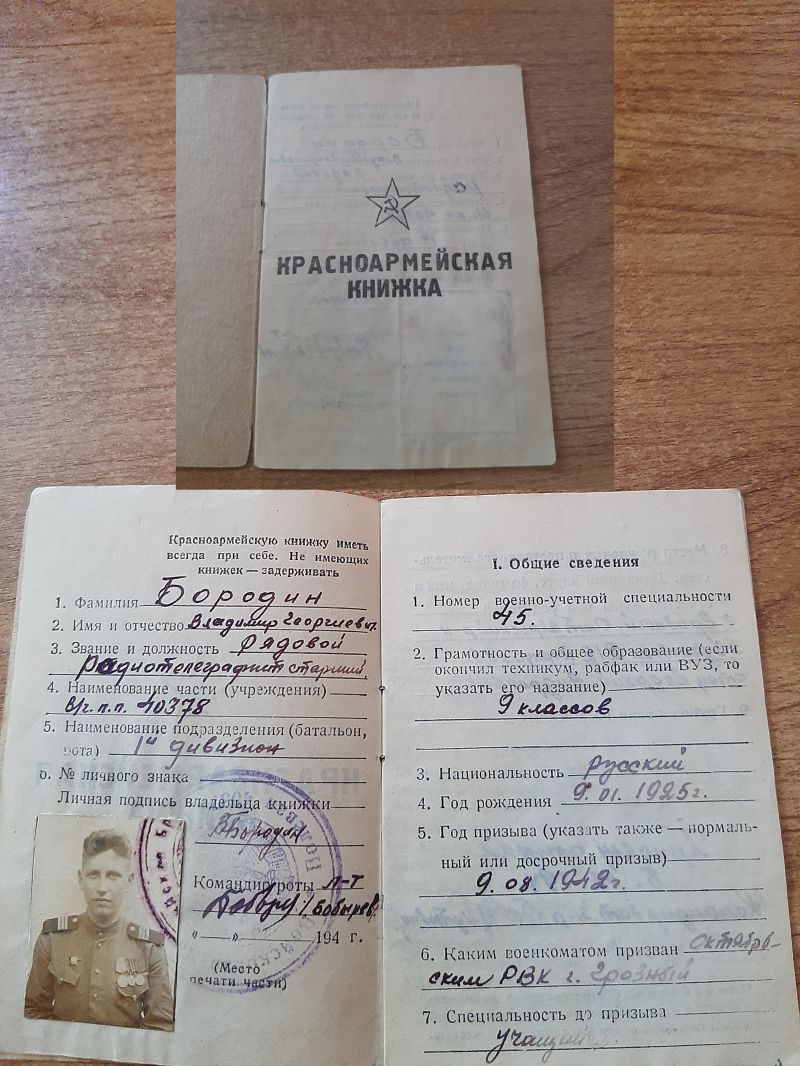 КРАСНОАРМЕЙСКАЯ
КНИЖКА
Красноармейскую книжку иметь
всегда при себе. Не имеющих
книжек — задерживать
1. Фамилия Бородин
2. Имя и отчество Владимир Георгиевич
3. Звание и должность Рядовой
Радиотелеграфист старший
4. Наименование части (учреждения)
в/ч. п.п. 40378
5. Наименование подразделения (батальон,
рота) 1й дивизион
6. № личного знака
Личная подпись владельца книжки
ВБородин
Командир роты Л-т
/Бобырев/
«—» 194 г.
(Место
печати части)
I. Общие сведения
1. Номер военно-учетной специальности
45.
2. Грамотность и общее образование (если
окончил техникум, рабфак или ВУЗ, то
указать его название)
9 классов
3. Национальность русский
4. Год рождения 9.01.1925г.
5. Год призыва (указать также — нормаль-
ный или досрочный призыв)
9.08.1942г.
6. Каким военкоматом призван октябрь-
ским РВК г. Грозный
7. Специальность до призыва
учащийся